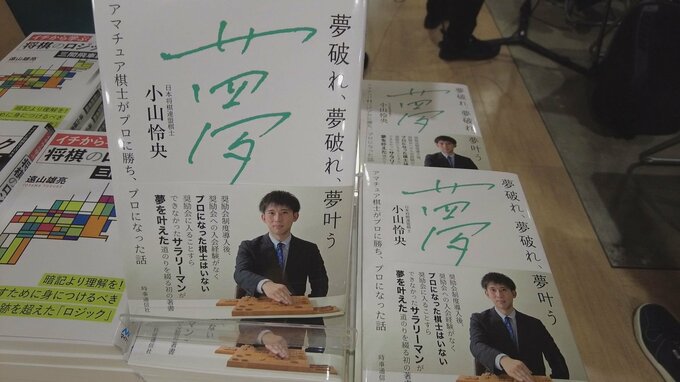 夢破れ、夢破れ、夢叶う
アマチュア棋士がプロに勝ち、プロになった話
夢
日本将棋連盟棋士
小山怜央
奨励会制度導入後、
奨励会への入会経験がなく
プロになった棋士はいない
奨励会に入ることすら
できなかったサラリーマンが
夢を叶えた道のりを綴る初の著書
時事通信社
夢破れ、夢破れ、夢叶う
アマチュア棋士がプロに勝ち、プロになった話
夢
日本将棋連盟棋士
小山怜央
奨励会制度導入後、
奨励会への入会経験がなく
プロになった棋士はいない
奨励会に入ることすら
できなかったサラリーマンが
夢を叶えた道のりを綴る初の著
時事通信
夢
小山怜央
夢破れ、夢破れ、夢叶う
イチから学ぶ
将棋のロジック
三間飛車
遠山雄亮
暗記より理解を!
身につけるべき
イチから
将棋のロ
遠山雄亮
暗記より理解を!
すために身につけるべき
跡を超えた「ロジック」